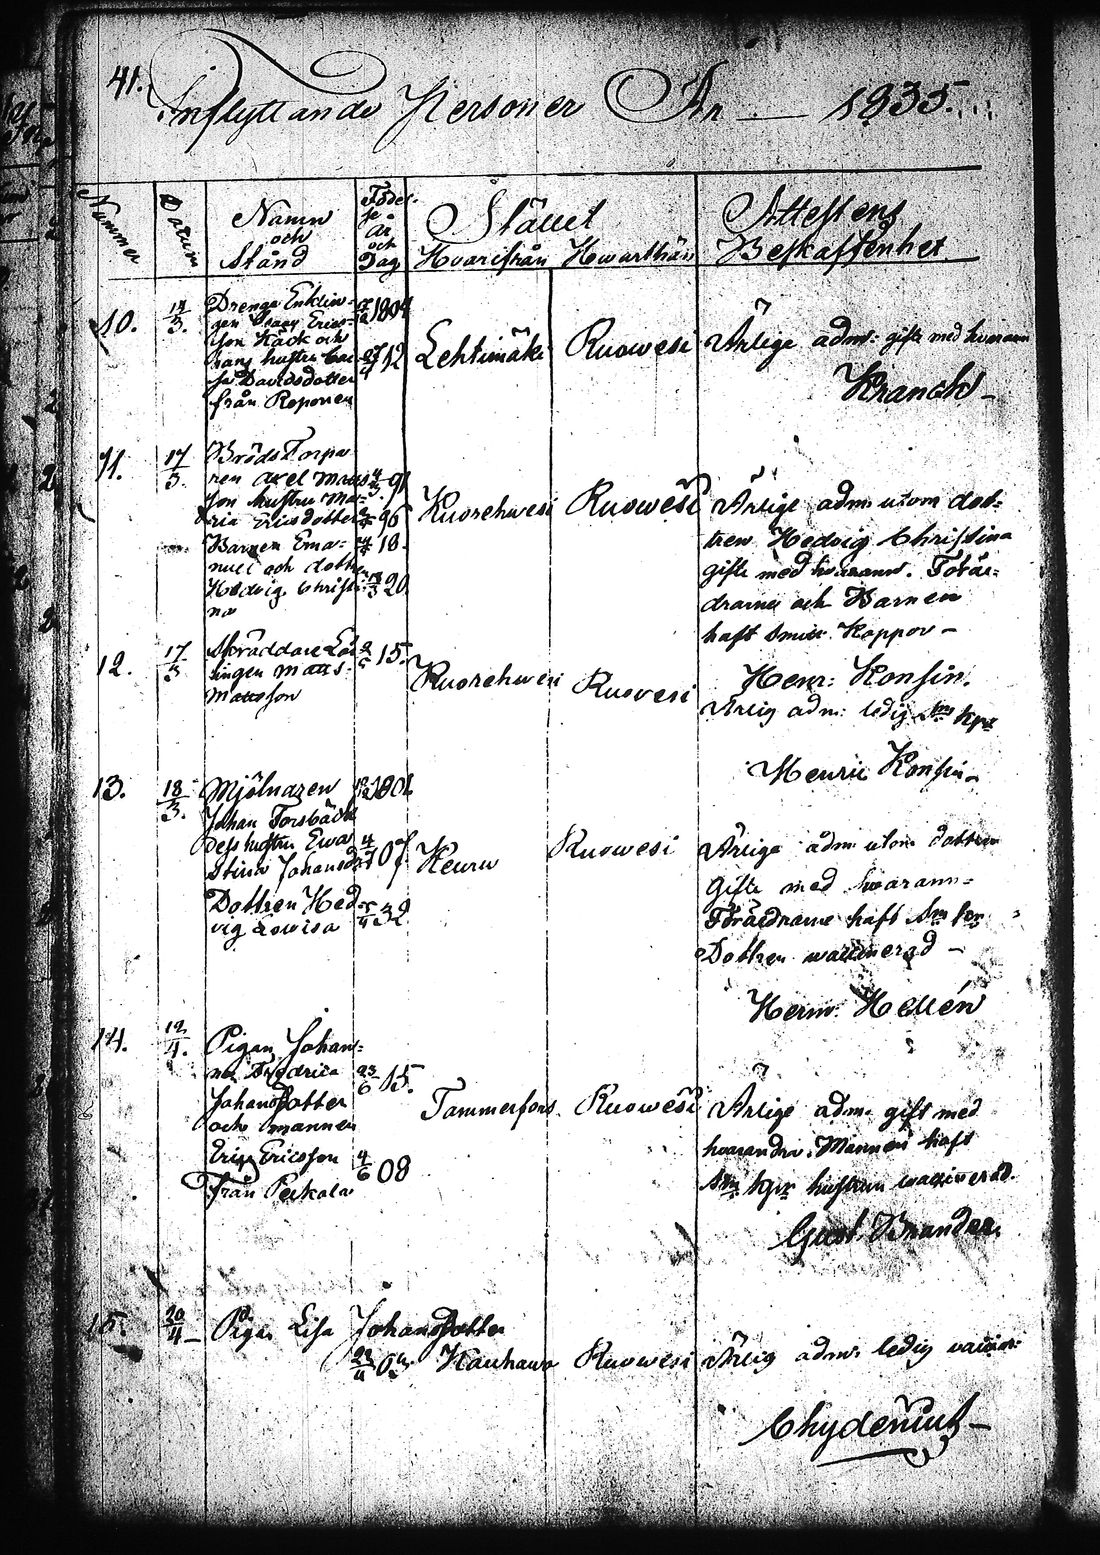 41.
Inflyttande Personer År 1835.
Nummer
Datum
Namn
och
Stånd
Födel-
se
År
och
Dag
Stället
Hvarifrån Hwarthän
Attestens
Beskaffenhet
10. 14/3. Drenge Enklin-
gen Isaac Erics-
son Käck och
hans hustru
Davidsdotter
från Reponen
1804
27/4 12
Lehtimäki Ruowesi Ärlige adm: gifte med hvarann
Kranck
11. 17/3. Bröds Torpa
ren Axel Matts
son hustru Ma-
ria Ericsdotter
Barnen Ema-
nuel och dottren
Hedvig Christi
na
91
96
18.
20
Kuorehwesi Ruowesi Ärlige adm: utom dot-
tren Hedvig Christina
gifte med hvarann. Föräl-
drarne och Barnen
haft Koppor
Henr: Konsin.
12. 17/3 Skräddare Lär
lingen Matts
Mattsson
15.
Kuorehwesi Ruovesi
Ärlig adm: ledig Sm kpr
Henric Konsin
13. 18/3. Mjölnaren
Johan Forsbäck
dess hustru Ewa
Stina Johansd:
Dottren Hed
vig Lovisa
1801
07
32
Keuru Ruowesi Ärlige adm: utom dottren
Gifte med hwarann-
Föräldrarne haft Sm kpr
Dottren waccinerad
Herm: Hellén
14. 12/4. Pigan Johan-
na Fredrica
Johansdotter
och mannen
Eric Ericsson
från Peskala
23/6 15.
4/6 08
Tammerfors Ruowesi Ärlige adm: gift med
hvarandra. Mannen haft
Sm kpr hustrun waccinerad.
Gust. Brander.
15. 20/4 Pigan Lisa Johansdotter
Kauhawa Ruowesi Ärlig adm: ledig vaccin:
Chydenius